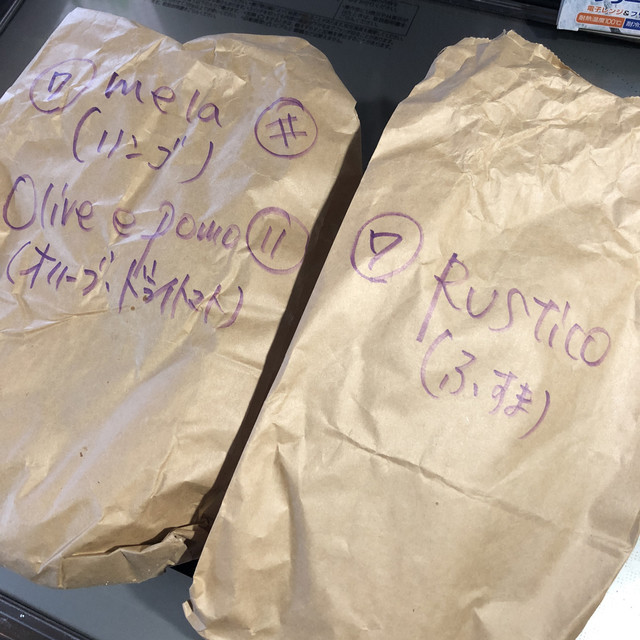 ワ mela 井
(リンゴ)
Olive e pomo 11
(オリーブ、ドライトマト)
ワ Rustico
(ふすま)
電子レンジ&
耐熱温度100℃